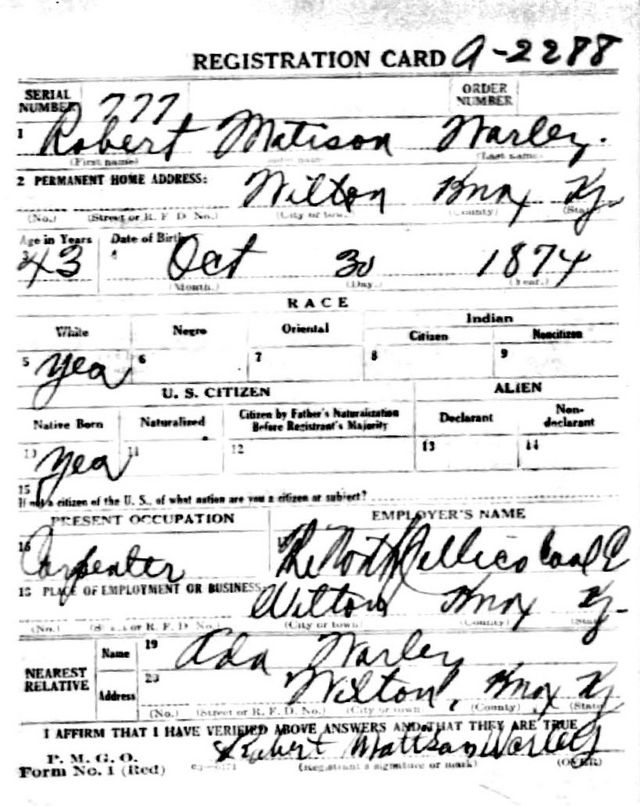 REGISTRATION CARD A-2288
SERIAL NUMBER 777 ORDER NUMBER
1 Robert Matison Warley.
(First name) (Last name)
2 PERMANENT HOME ADDRESS: Wilton Knox Ky.
(No.) (Street or R. F. D. No.) (City or town) (County) (State)
Age in Years Date of Birth
3 43 4 Oct 30 1874
(Month.) (Day.) (Year.)
RACE
White Negro Oriental Indian
Citizen Noncitizen
5 Yea 6 7 8 9
U. S. CITIZEN ALIEN
Native Born Naturalized Citizen by Father's Naturalization Before Registrant's Majority Declarant Non-declarant
10 Yea 11 12 13 14
15
If not a citizen of the U. S., of what nation are you a citizen or subject?
PRESENT OCCUPATION EMPLOYER'S NAME
16 Carpenter The North Jellico Coal C
18 PLACE OF EMPLOYMENT OR BUSINESS: Wilton Knox Ky.
(No.) (Street or R. F. D. No.) (City or town) (County) (State)
NEAREST RELATIVE Name 19 Ada Warley
Address 20 Wilton, Knox Ky
(No.) (Street or R. F. D. No.) (City or town) (County) (State)
I AFFIRM THAT I HAVE VERIFIED ABOVE ANSWERS AND THAT THEY ARE TRUE
P. M. G. O.
Form No. 1 (Red) Robert Mattson Warley
(Registrant's signature or mark) (OVER)